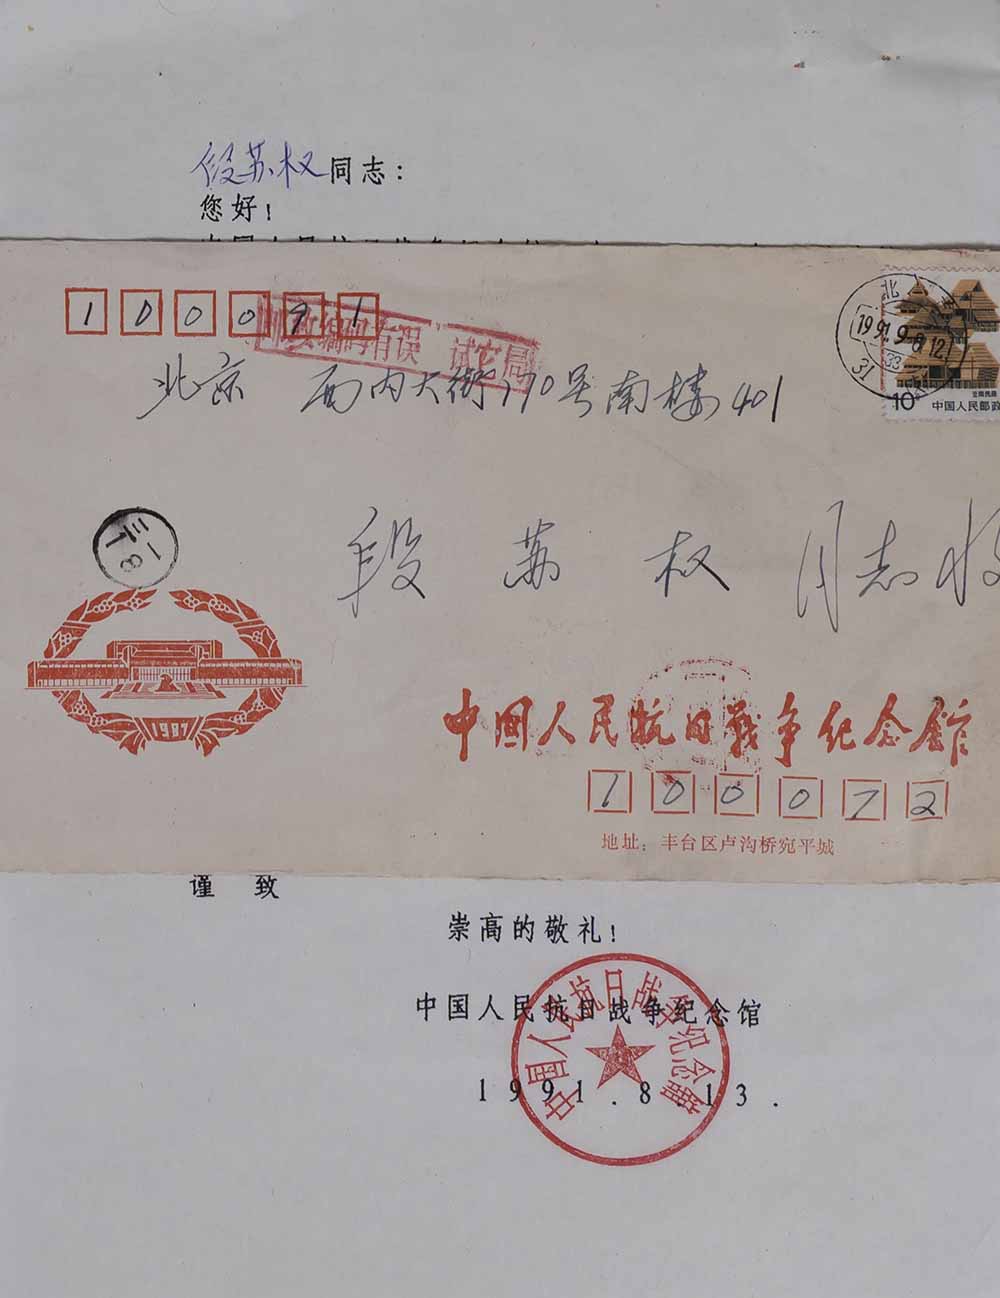 段苏权同志：
您好！
100091
邮政编码有误 试它局
北京 西内大街170号南楼401
北京
1991.9.8.12
31
10
云南民居
中国人民邮政
段苏权同志收
1987
中国人民抗日战争纪念馆
100072
地址：丰台区卢沟桥宛平城
谨 致
崇高的敬礼！
中国人民抗日战争纪念馆
中国人民抗日战争纪念馆
1991.8.13.